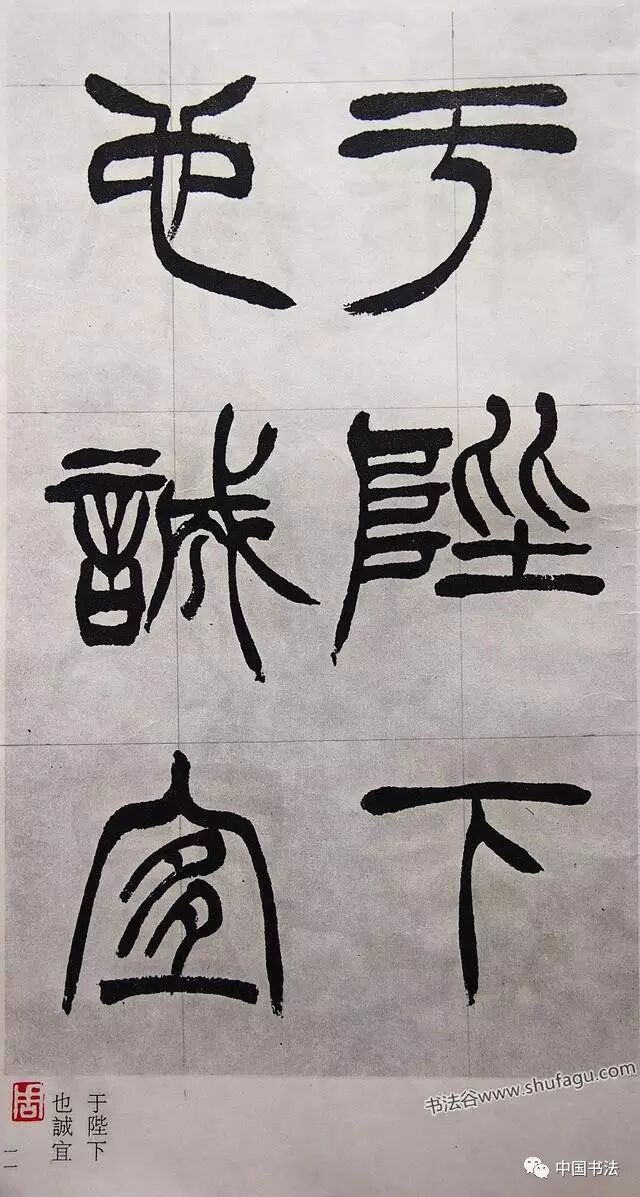 于陛下
也誠宜
于陛下
也誠宜
一一
书法谷www.shufagu.com
中国书法